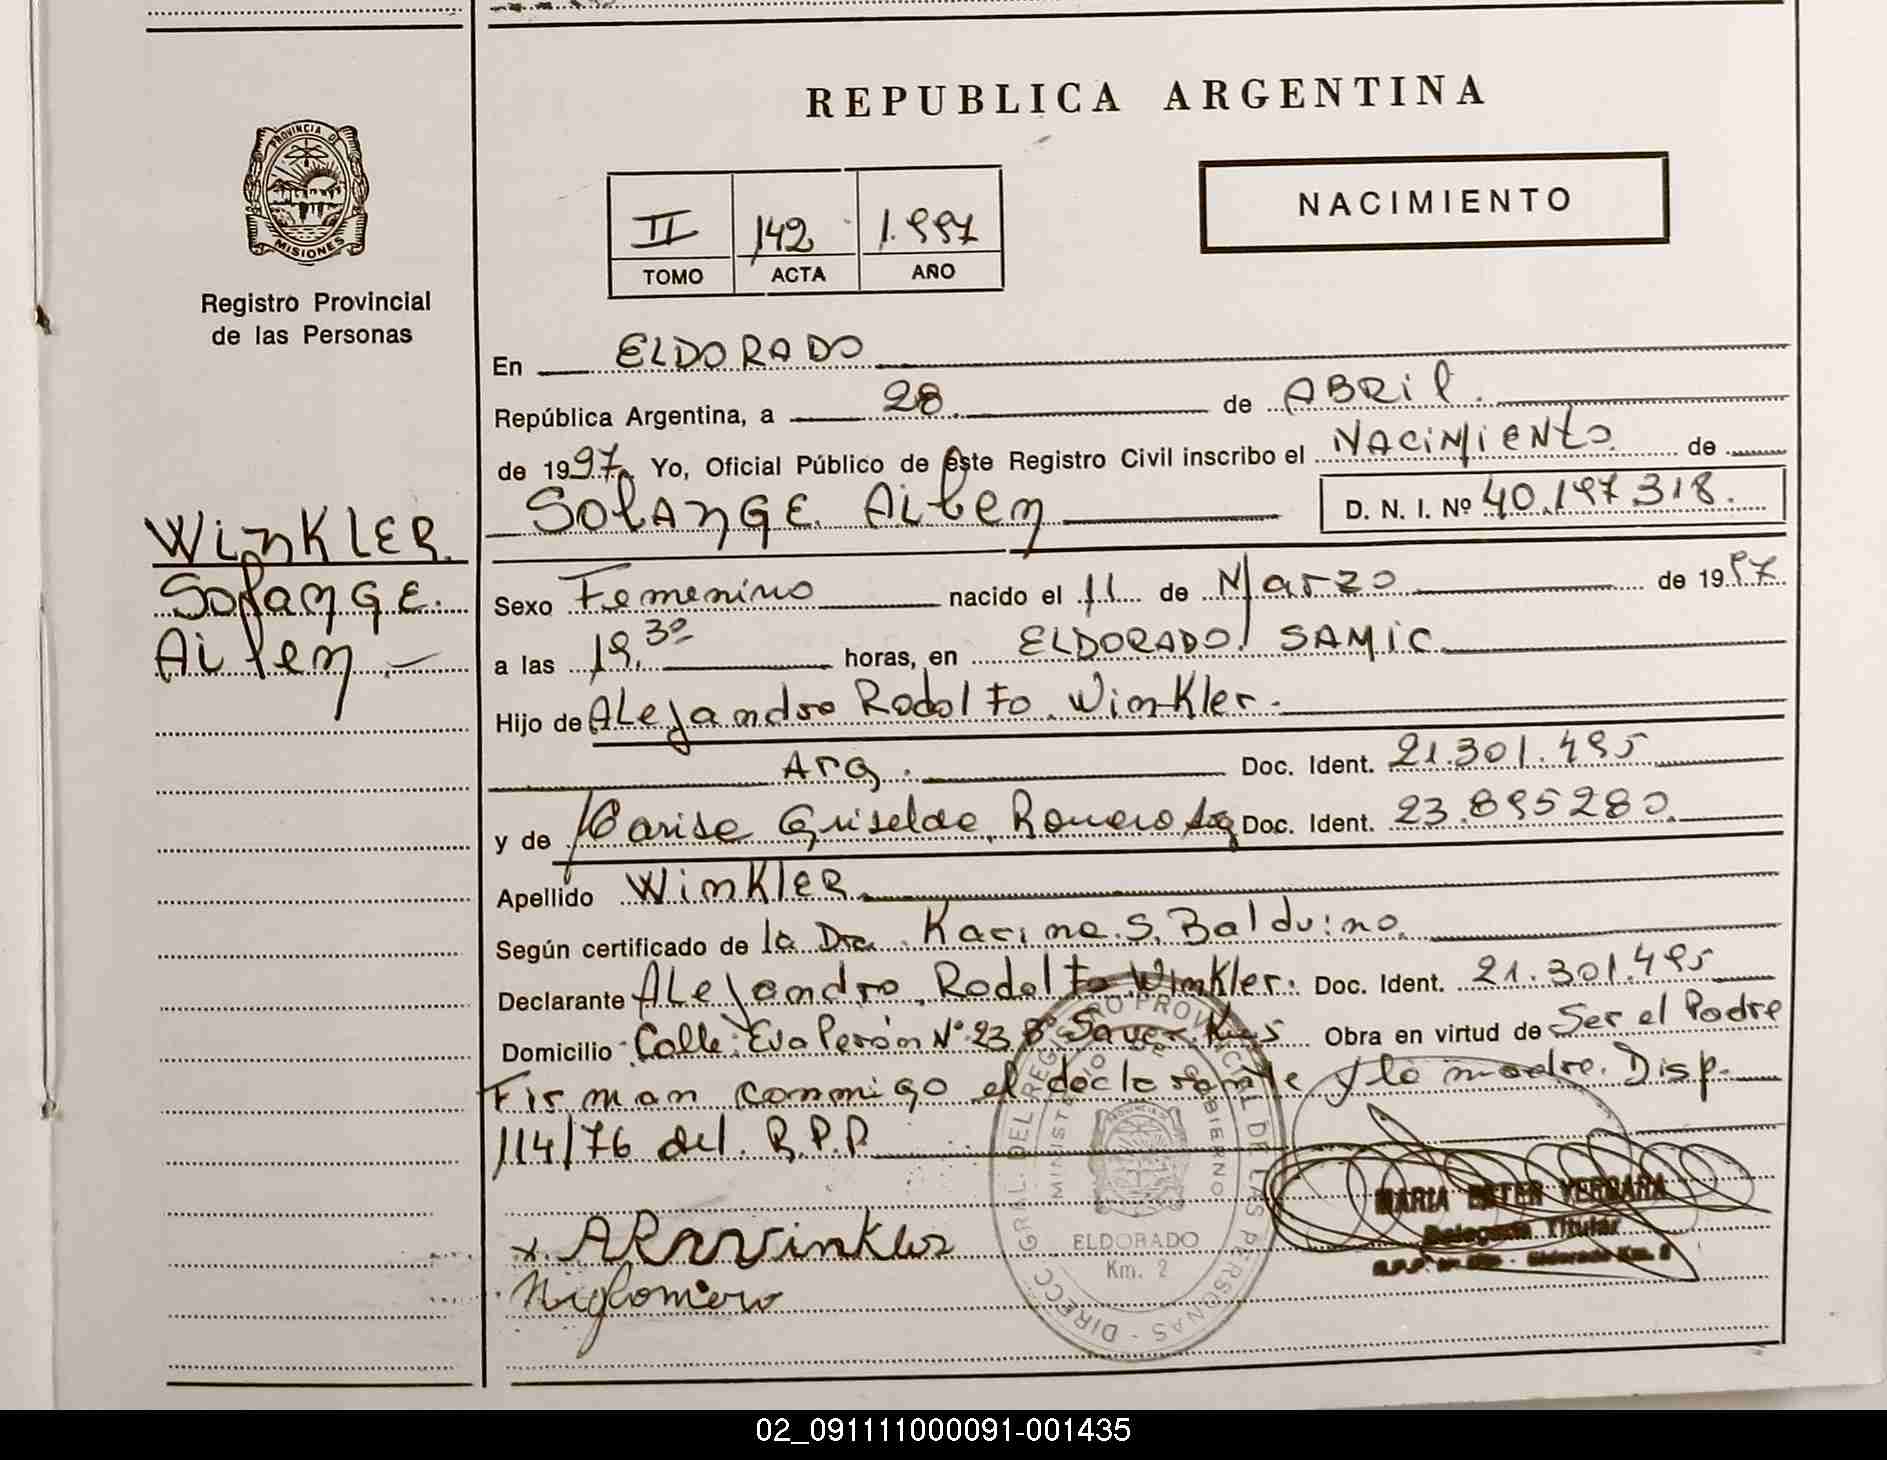 REPUBLICA ARGENTINA
PROVINCIA DE
MISIONES
Registro Provincial
de las Personas
II 142 1.997
TOMO ACTA AÑO
NACIMIENTO
En ELDORADO
República Argentina, a 28 de ABRil.
de 1997. Yo, Oficial Público de este Registro Civil inscribo el NACiMiENto de
SolANGE Ailen D. N. I. Nº 40.197.318.
WinKLER.
SolanGE.
Ailen
Sexo Femenino nacido el 11 de Marzo de 1997
a las 19.30 horas, en ELDORADO. SAMiC.
Hijo de ALejandro Rodolfo Winkler.
Arg. Doc. Ident. 21.301.495
y de Marisa Griselda Romero Arg Doc. Ident. 23.895280.
Apellido WinKlER.
Según certificado de la Dra. Karina S. Balduino.
Declarante ALejandro Rodolfo Winkler. Doc. Ident. 21.301.495
Domicilio Calle: Eva Perón Nº 23 Bº Obra en virtud de Ser el Padre
Firman conmigo el declarante y la madre. Disp.
114/76 del R.P.P.
DIRECC. GRAL. DEL REGISTRO PROVINCIAL DE LAS PERSONAS
MINISTERIO DE GOBIERNO
PROVINCIA DE
ELDORADO
Km. 2
MARIA ESTER VERGARA
Delegada Titular
x. ARWinkler
02_091111000091-001435